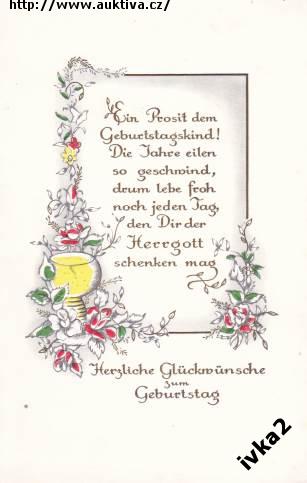 http://www.auktiva.cz/
Ein Prosit dem
Geburtstagskind!
Die Jahre eilen
so geschwind,
drum lebe froh
noch jeden Tag,
den Dir der
Herrgott
schenken mag
Herzliche Glückwünsche
zum
Geburtstag
ivka2